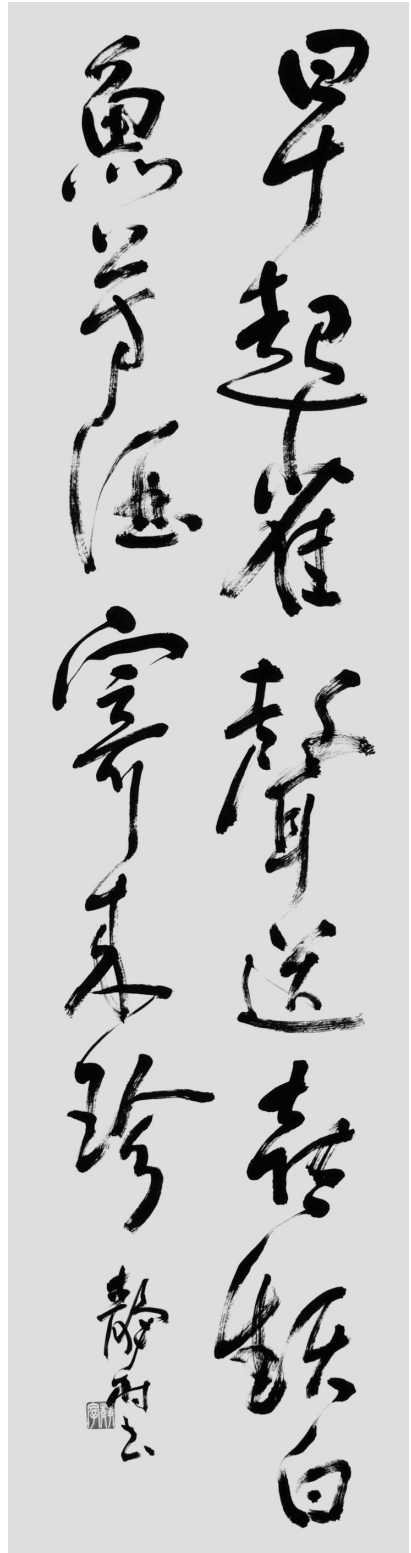 早起雀聲送喜頻白
魚芳酒寄來珍
靜書